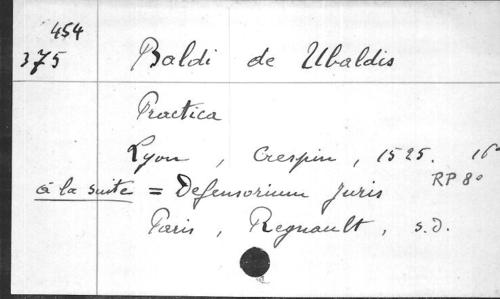 454
375 Baldi de Ubaldis
Practica
Lyon, Crespin, 1525. 16°
RP 8°
à la suite = Defensorium juris
Paris, Regnault, s.d.